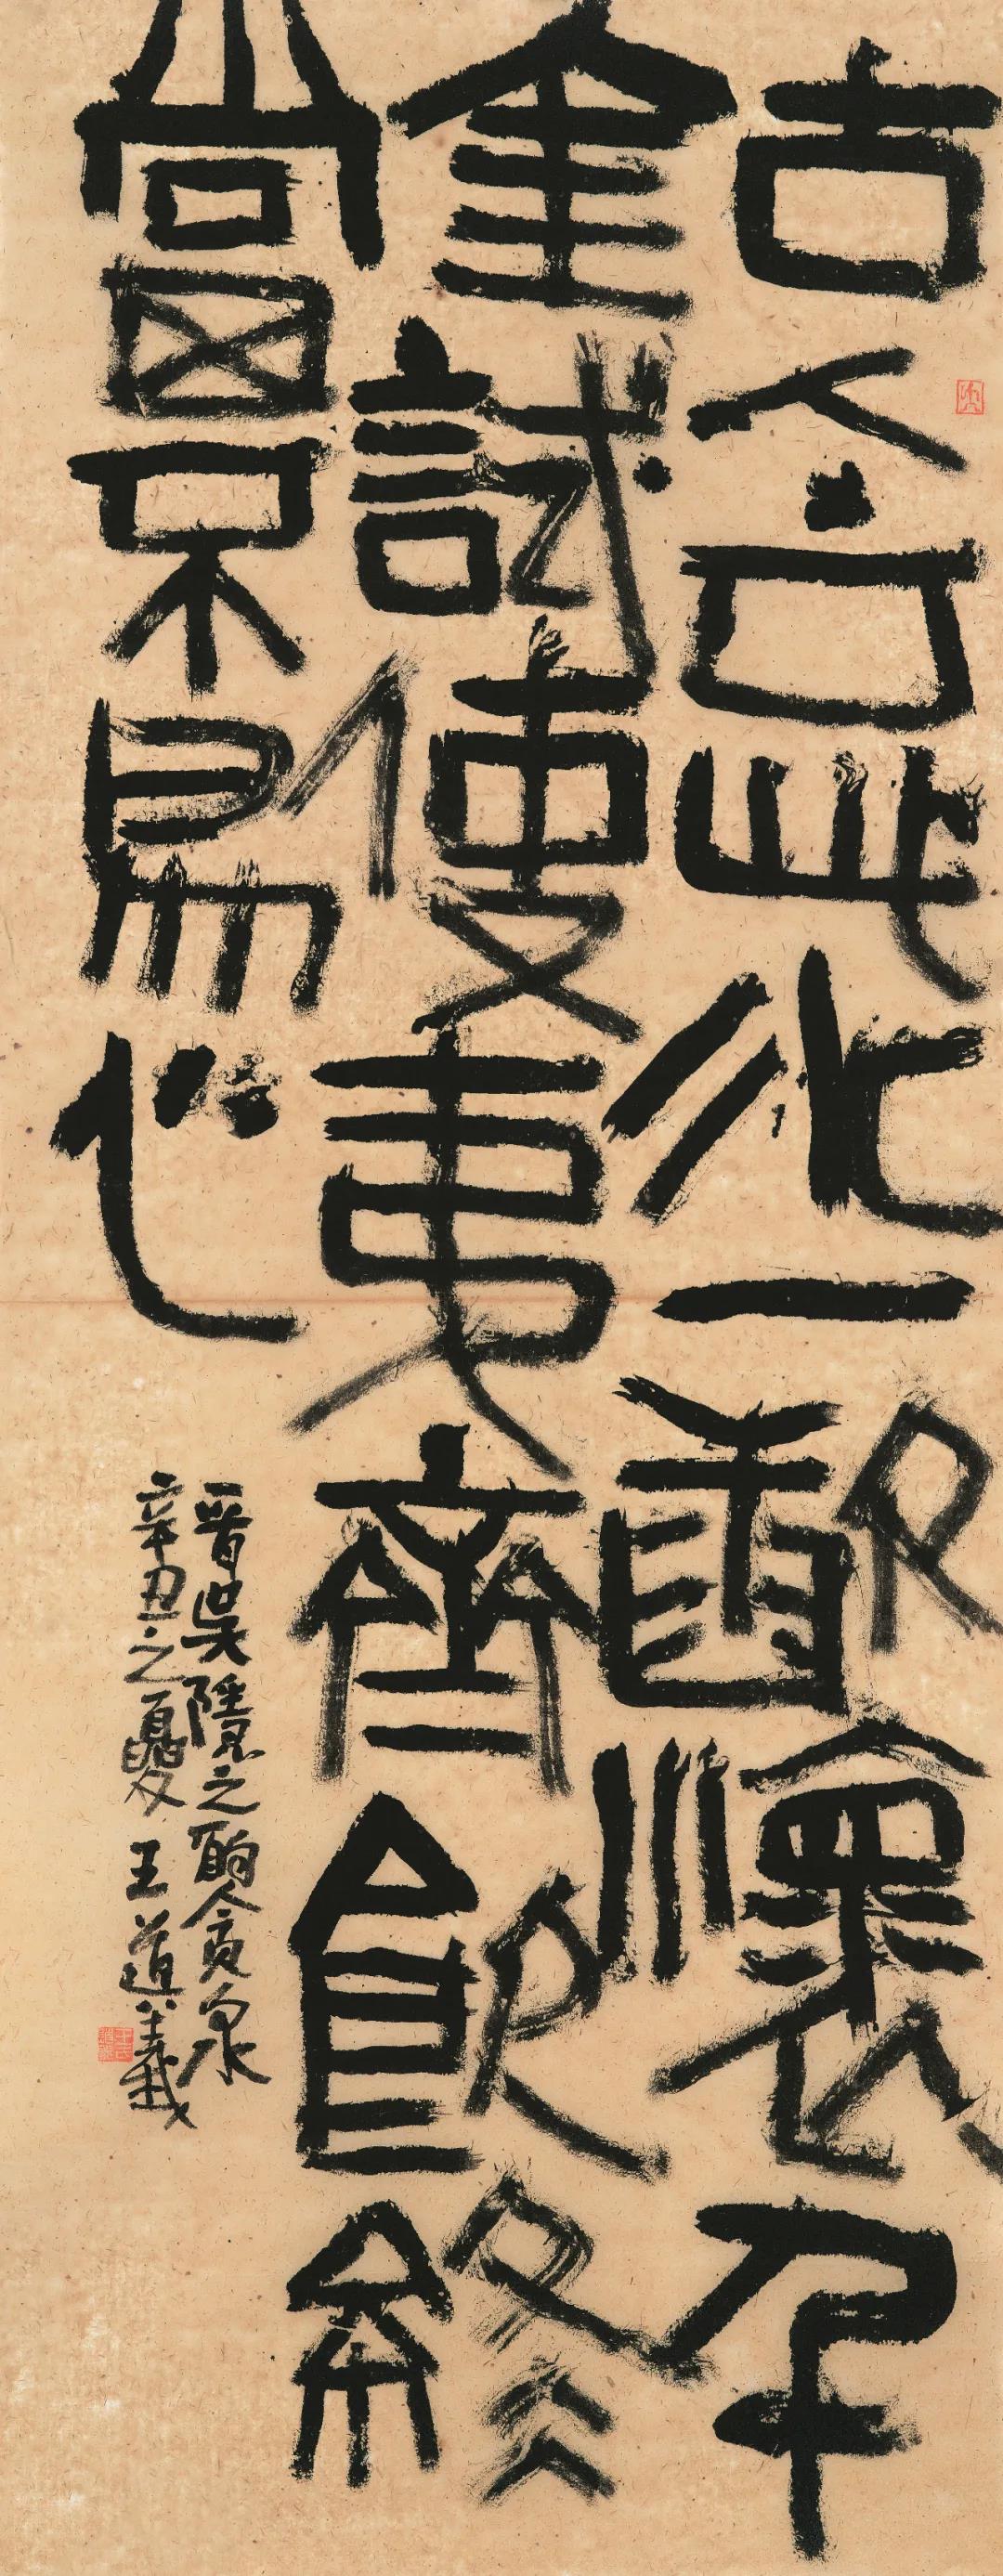 古人云此水一歃懷千
金試使夷齊飲終
當不易心
晉吳隱之酌貪泉
辛丑之夏 王道義